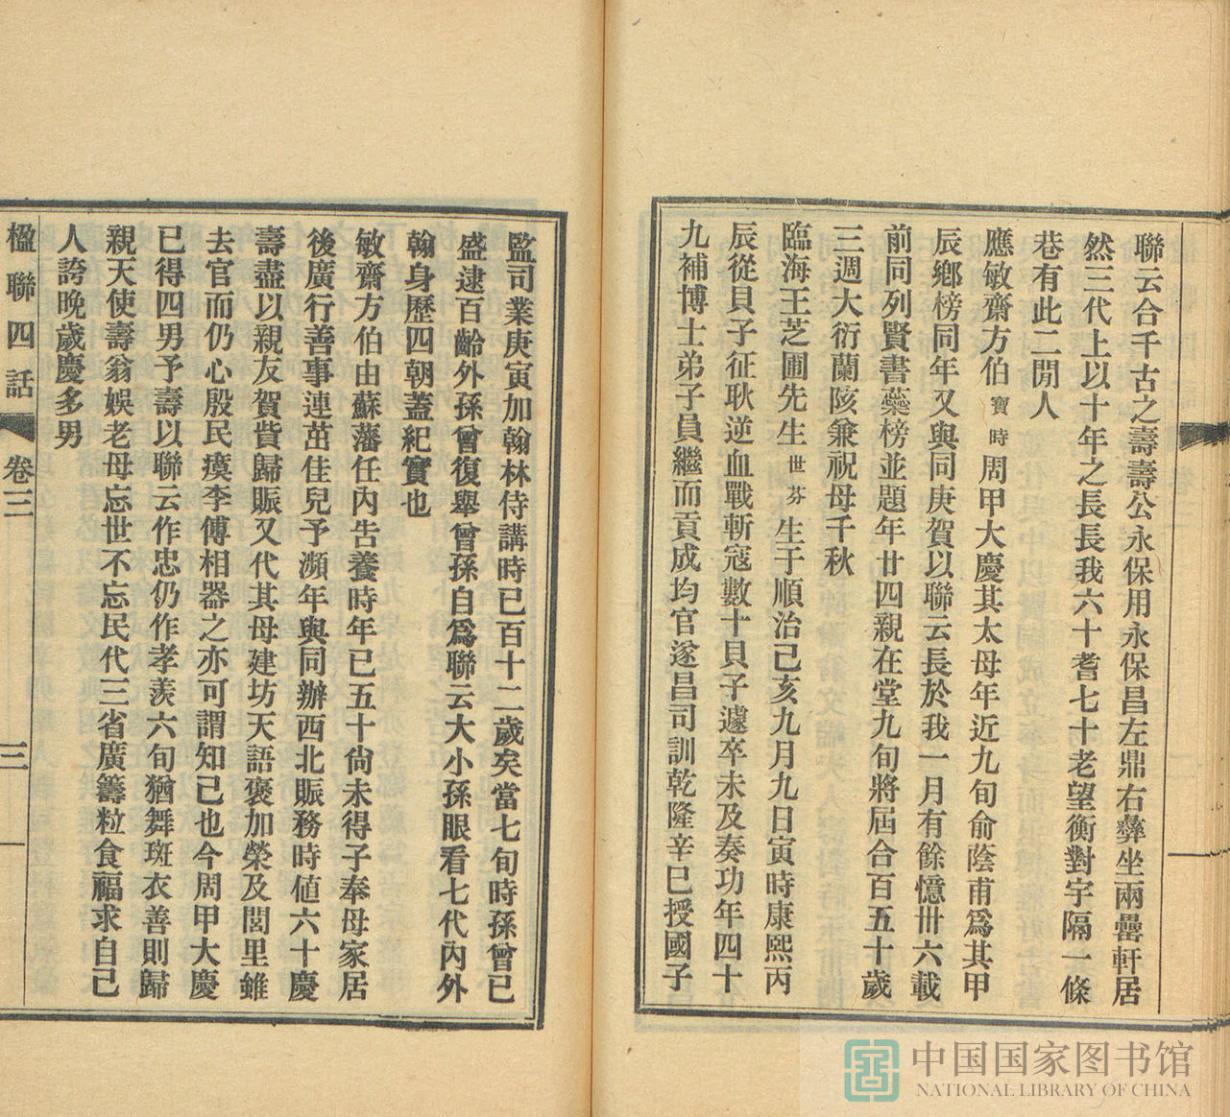 聯云合千古之壽壽公永保用永保昌左鼎右彝坐兩罍軒居
然三代上以十年之長長我六十耆七十老望衡對宇隔一條
巷有此二閒人
應敏齋方伯寶時周甲大慶其太母年近九旬俞蔭甫爲其甲
辰鄉榜同年又與同庚賀以聯云長於我一月有餘憶卅六載
前同列賢書藥榜並題年廿四親在堂九旬將屆合百五十歲
三週大衍蘭陔兼祝母千秋
臨海王芝圃先生世芬生于順治己亥九月九日寅時康熙丙
辰從貝子征耿逆血戰斬寇數十貝子遽卒未及奏功年四十
九補博士弟子員繼而貢成均官遂昌司訓乾隆辛巳授國子
監司業庚寅加翰林侍講時已百十二歲矣當七旬時孫曾已
盛逮百齡外孫曾復舉曾孫自爲聯云大小孫眼看七代內外
翰身歷四朝蓋紀實也
敏齋方伯由蘇藩任內告養時年已五十尙未得子奉母家居
後廣行善事連茁佳兒予瀕年與同辦西北賑務時値六十慶
壽盡以親友賀貲歸賑又代其母建坊天語褒加榮及閭里雖
去官而仍心殷民瘼李傅相器之亦可謂知己也今周甲大慶
已得四男予壽以聯云作忠仍作孝羨六旬猶舞斑衣善則歸
親天使壽翁娛老母忘世不忘民代三省廣籌粒食福求自己
人誇晚歲慶多男
楹聯四話
卷三
三
中国国家图书馆
NATIONAL LIBRARY OF CHINA